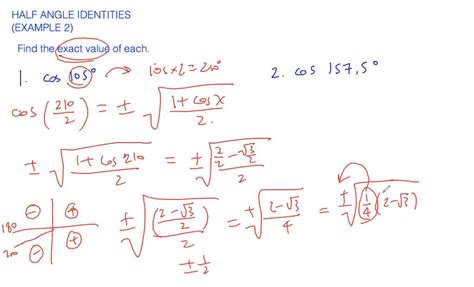 HALF ANGLE IDENTITIES
(EXAMPLE 2)
Find the exact value of each.
1. cos 105° → 105×2=210°
2. cos 157,5°
cos(210/2) = ± √((1+cos x)/2)
± √((1+cos 210)/2) = ± √((2/2 - √3/2)/2)
± √(((2-√3)/2)/2) = ± √((2-√3)/4) = ± √(1/4 (2-√3))
± 1/2
180
- +
- +